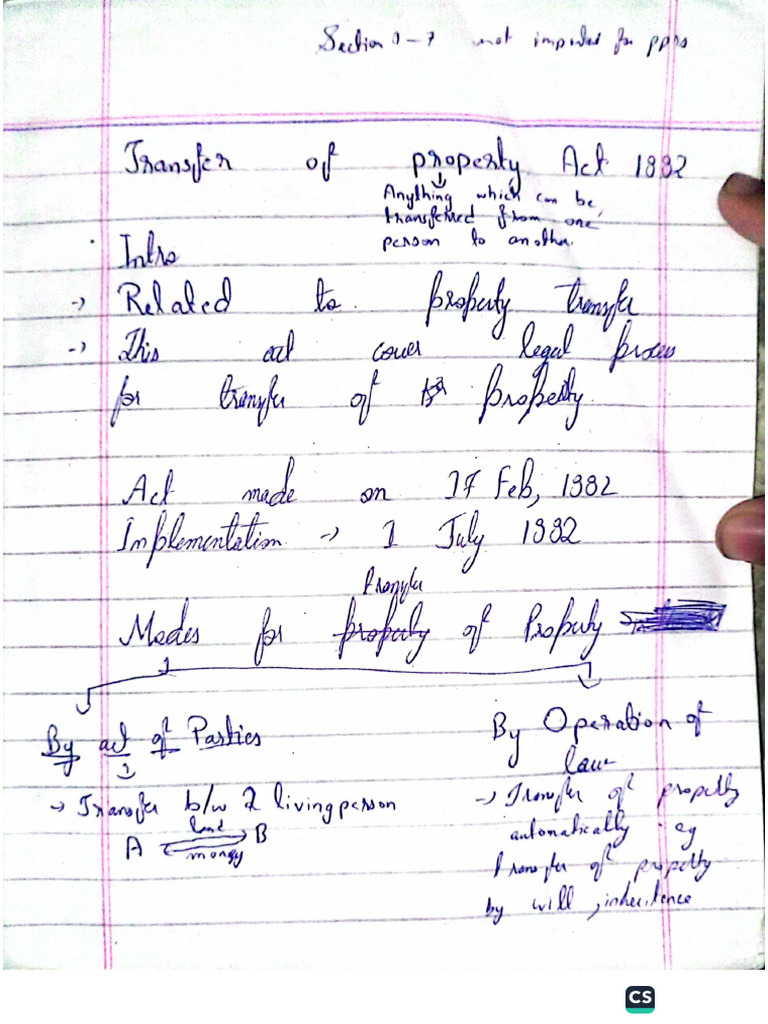 Section 1-7 not imported for pprs
Transfer of property Act 1882
Anything which can be
transferred from one
person to another.
Intro
→ Related to property transfer
→ This act cover legal process
for transfer of property
Act made on 17 Feb, 1882
Implementation → 1 July 1882
Transfer
Modes for property of Property
By act of Parties
→ Transfer b/w 2 living person
land
A B
money
By Operation of
law
→ Transfer of property
automatically . eg
transfer of property
by will, inheritence
CS